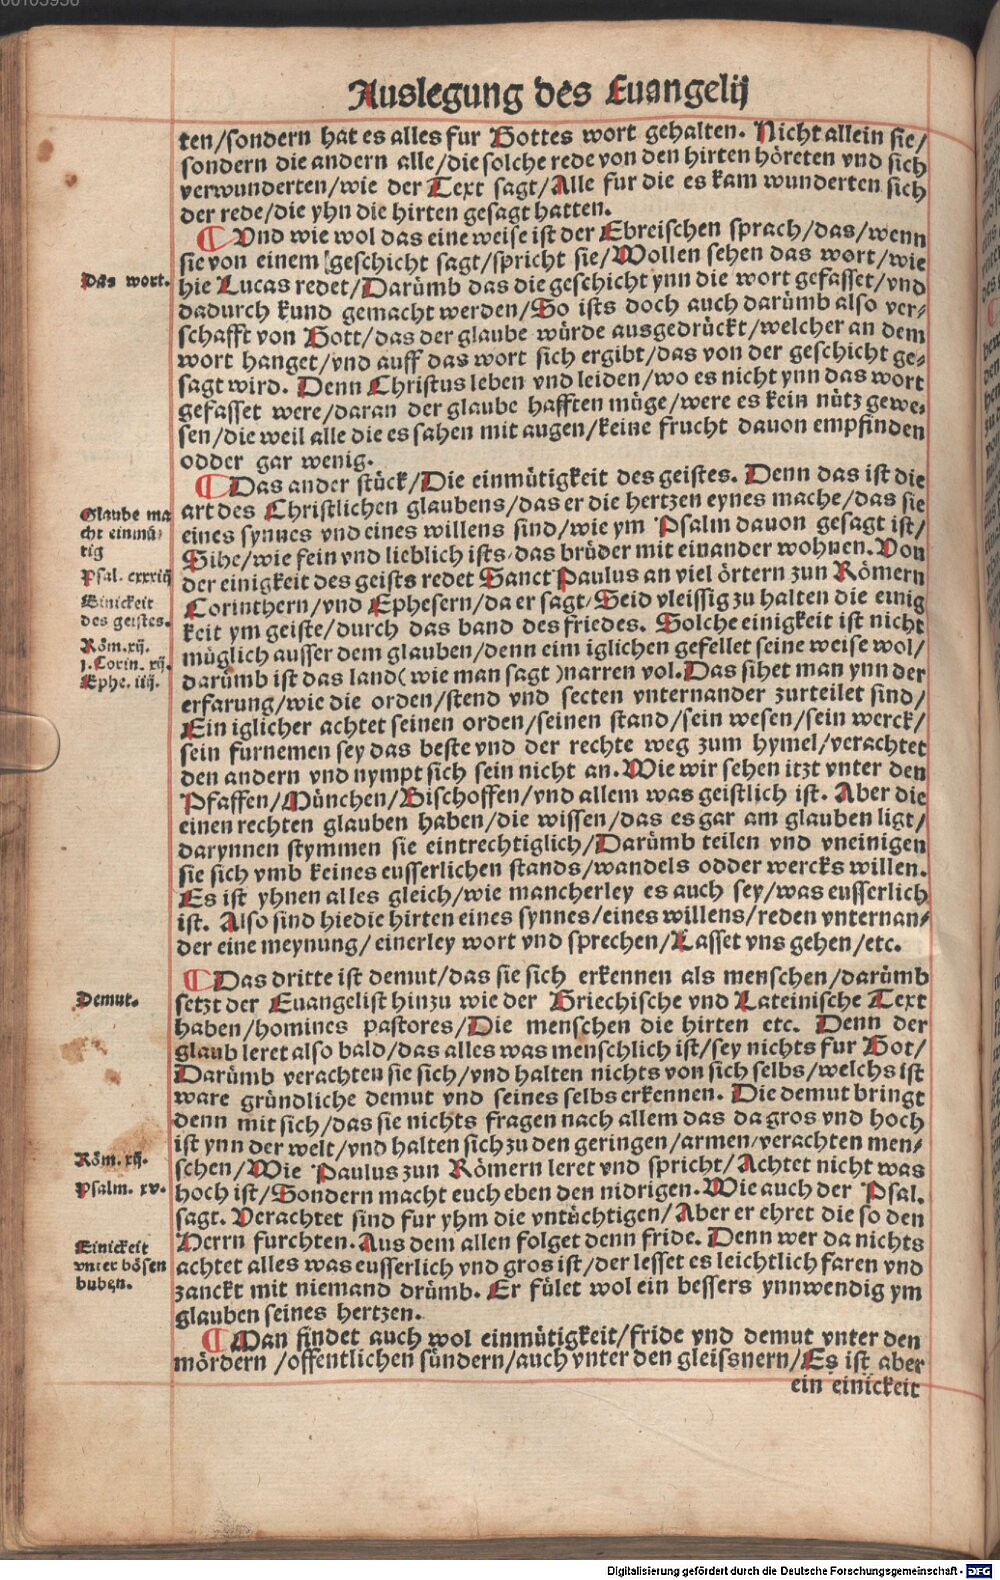 Auslegung des Euangelij
ten/sondern hat es alles fur Gottes wort gehalten. Nicht allein sie/
sondern die andern alle/die solche rede von den hirten höreten vnd sich
verwunderten/wie der Text sagt/Alle fur die es kam wunderten sich
der rede/die yhn die hirten gesagt hatten.
Vnd wie wol das eine weise ist der Ebreischen sprach/das/wenn
sie von einem geschicht sagt/spricht sie/Wollen sehen das wort/wie
Das wort.
hie Lucas redet/Darümb das die geschicht ynn die wort gefasset/vnd
dadurch kund gemacht werden/So ists doch auch darümb also ver-
schafft von Gott/das der glaube würde ausgedrückt/welcher an dem
wort hanget/vnd auff das wort sich ergibt/das von der geschicht ge-
sagt wird. Denn Christus leben vnd leiden/wo es nicht ynn das wort
gefasset were/daran der glaube hafften müge/were es kein nütz gewe-
sen/die weil alle die es sahen mit augen/keine frucht dauon empfinden
odder gar wenig.
Das ander stück/Die einmütigkeit des geistes. Denn das ist die
art des Christlichen glaubens/das er die hertzen eynes mache/das sie
eines synnes vnd eines willens sind/wie ym Psalm dauon gesagt ist/
Sihe/wie fein vnd lieblich ists/das brüder mit einander wohnen. Von
der einigkeit des geists redet Sanct Paulus an viel örtern zun Römern
Corinthern/vnd Ephesern/da er sagt/Seid vleissig zu halten die einig
keit ym geiste/durch das band des friedes. Solche einigkeit ist nicht
müglich ausser dem glauben/denn eim iglichen gefellet seine weise wol/
darümb ist das land (wie man sagt) narren vol. Das sihet man ynn der
erfarung/wie die orden/stend vnd secten vnternander zurteilet sind/
Ein iglicher achtet seinen orden/seinen stand/sein wesen/sein werck/
sein furnemen sey das beste vnd der rechte weg zum hymel/verachtet
den andern vnd nympt sich sein nicht an. Wie wir sehen itzt vnter den
Pfaffen/München/Bischoffen/vnd allem was geistlich ist. Aber die
einen rechten glauben haben/die wissen/das es gar am glauben ligt/
darynnen stymmen sie eintrechtiglich/Darümb teilen vnd vneinigen
sie sich vmb keines eusserlichen stands/wandels odder wercks willen.
Es ist yhnen alles gleich/wie mancherley es auch sey/was eusserlich
ist. Also sind hie die hirten eines synnes/eines willens/reden vnternan-
der eine meynung/einerley wort vnd sprechen/Lasset vns gehen/etc.
Glaube ma
cht einmü-
tig
Psal. cxxxiij
Einickeit
des geistes.
Röm. xij.
j. Corin. xij.
Ephe. iiij.
Das dritte ist demut/das sie sich erkennen als menschen/darümb
Demut.
setzt der Euangelist hinzu wie der Griechische vnd Lateinische Text
haben/homines pastores/Die menschen die hirten etc. Denn der
glaub leret also bald/das alles was menschlich ist/sey nichts fur Got/
Darümb verachten sie sich/vnd halten nichts von sich selbs/welchs ist
ware gründliche demut vnd seines selbs erkennen. Die demut bringt
denn mit sich/das sie nichts fragen nach allem das da gros vnd hoch
ist ynn der welt/vnd halten sich zu den geringen/armen/verachten men-
schen/Wie Paulus zun Römern leret vnd spricht/Achtet nicht was
hoch ist/Sondern macht euch eben den nidrigen. Wie auch der Psal.
sagt. Verachtet sind fur yhm die vntüchtigen/Aber er ehret die so den
Herrn furchten. Aus dem allen folget denn fride. Denn wer da nichts
achtet alles was eusserlich vnd gros ist/der lesset es leichtlich faren vnd
zanckt mit niemand drümb. Er fület wol ein bessers ynnwendig ym
glauben seines hertzen.
Röm. xij.
Psalm. xv.
Einickeit
vnter bösen
buben.
Man findet auch wol einmütigkeit/fride vnd demut vnter den
mördern/offentlichen sündern/auch vnter den gleissnern/Es ist aber
ein einickeit
Digitalisierung gefördert durch die Deutsche Forschungsgemeinschaft - DFG